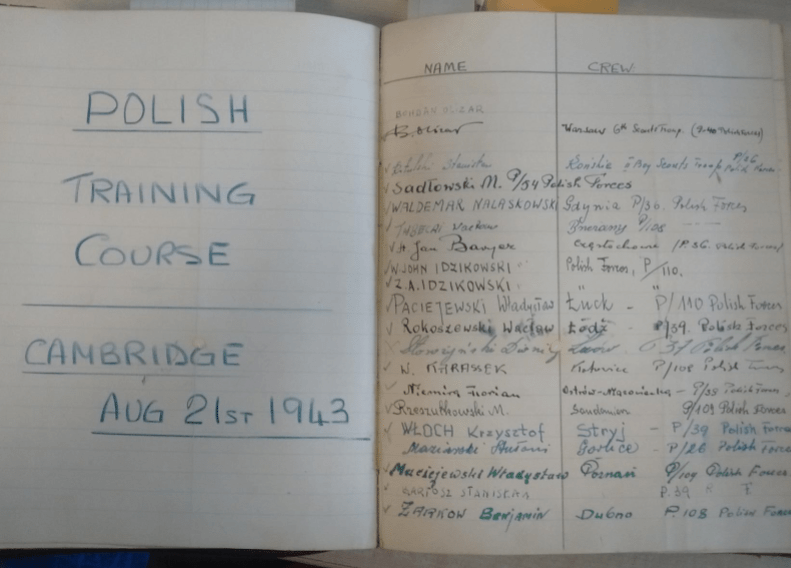 POLISH
TRAINING
COURSE
CAMBRIDGE
AUG 21ST 1943
NAME CREW
BOHDAN OLIZAR
B. Olizar Warsaw 6th
Stanisław II Boy Scouts Troop P/36 Polish Forces
Sadłowski M. P/54 Polish Forces
WALDEMAR NALASKOWSKI Gdynia P/30. Polish Forces
Wacław P/108
Jan Częstochowa
W. JOHN IDZIKOWSKI Polish Forces, P/110.
Z.A. IDZIKOWSKI " "
PACIEJEWSKI Władysław Łuck - P/110 Polish Forces
Rokoszewski Wacław Łódź - P/59. Polish Forces
Lwów. P 37 Polish Forces
W. KARASSEK Katowice P/108 Polish Forces
Niemira Florian Ostrów-Mazowiecka - P/39 Polish Forces,
M. Sandomierz P/109 Polish Forces
WŁOCH Krzysztof Stryj - P/39 Polish Forces
Antoni Gorlice - P/26 Polish Forces
Maciejewski Władysław Poznań P/104 Polish Forces
BARTOSZ P. 39 F.
ŻARKOW Benjamin Dubno P. 108 Polish Forces